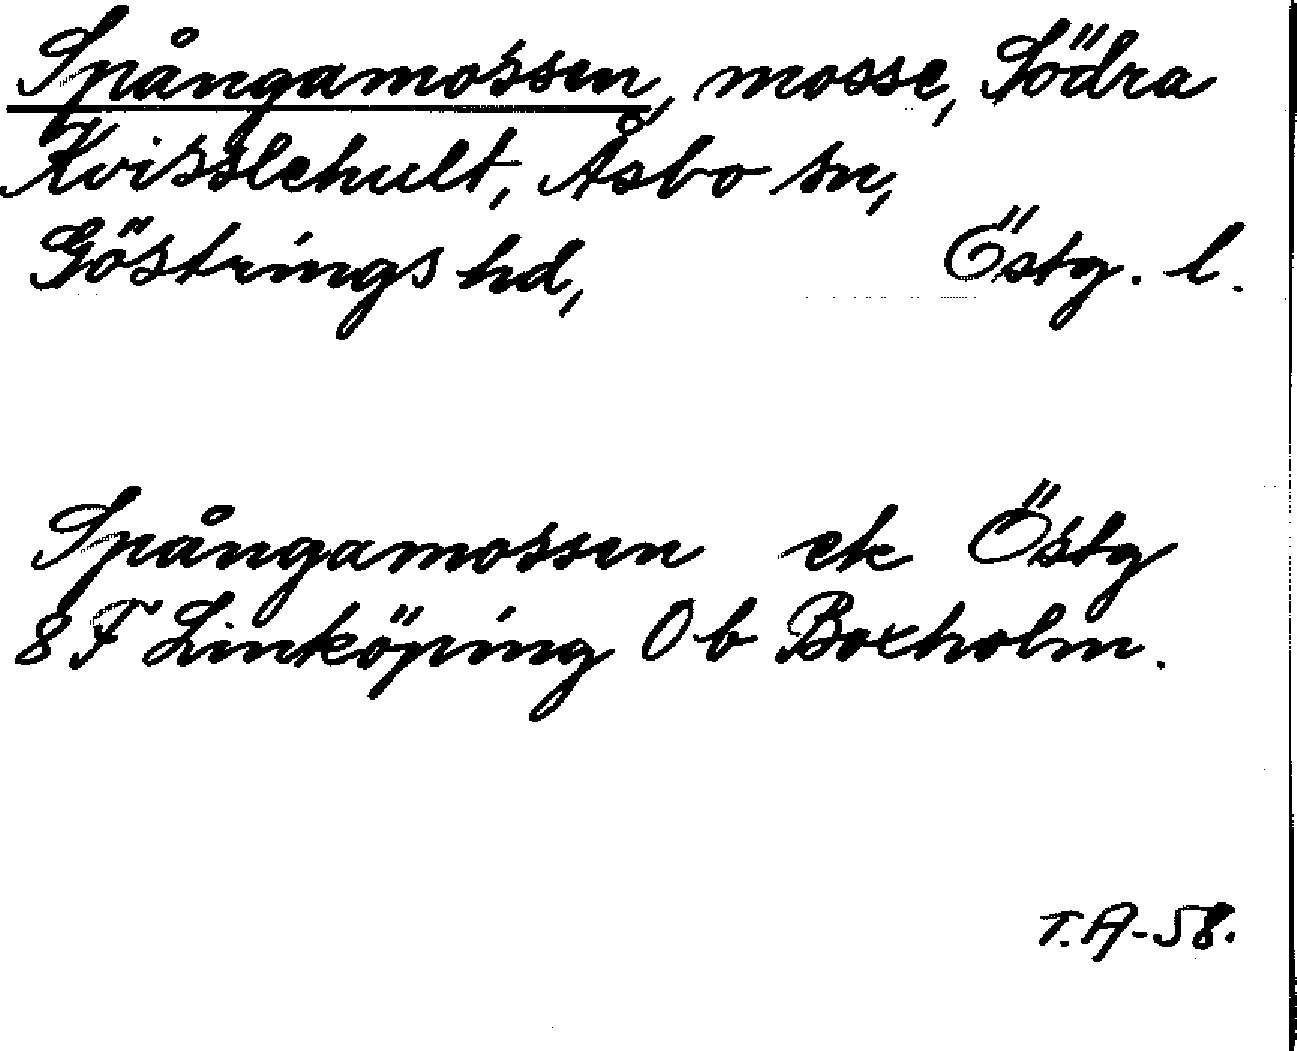 Spångamossen, mosse, Södra
Kvisslehult, Åsbo sn,
Göstrings hd, Östg. l.
Spångamossen ek Östg
8 F Linköping 0 b Boxholm.
T.A-58.